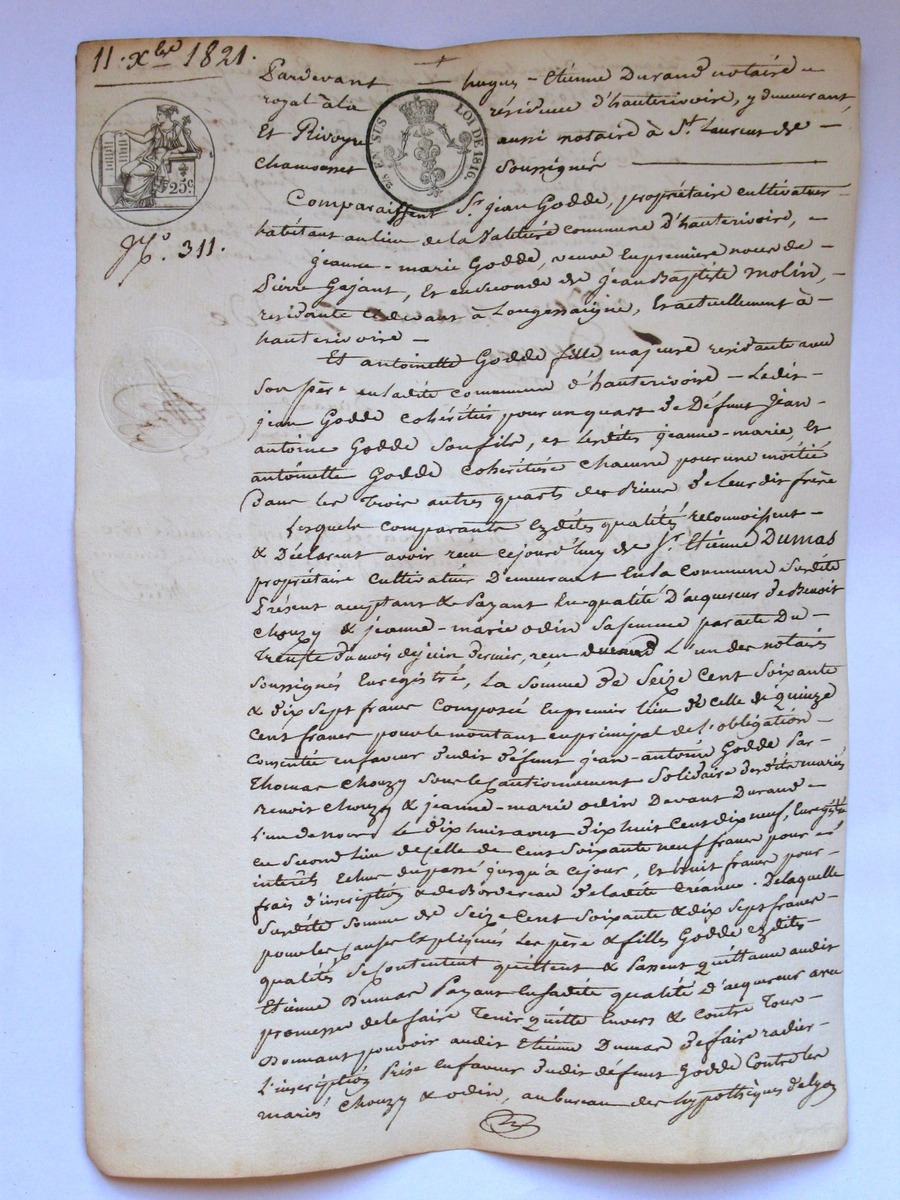 11. xbre 1821.
Pardevant hugues-Etiénne Durand notaire
royal à la résidence d'hauterivoire, y demeurant,
Et Rivoyre aussi notaire à St. Laurent de
Chamousset Soussignés
EN SUS
LOI DE 1816.
25c.
No. 311.
Comparaissent Sr. jean Godde, propriétaire cultivateur
habitant au lieu de la commune d'hauterivoire,
jeanne-marie Godde, veuve En premiére noces de
Pierre Gajant, Et en Seconde de jean Baptiste molin,
résidante Cidevant à Longessaigne, Et actuellement à
hauterivoire
Et antoinette Godde fille majeure résidante avec
Son pére en ladite commune d'hauterivoire - Ledit
jean Godde cohéritier pour un quart de Défunt jean
antoine Godde Son fils, et lesdites jeanne-marie, Et
antoinette Godde cohéritiére chacune pour une moitié
Dans les trois autres quarts des Biens de leur dit frère
Lesquels comparants Ezdites qualités reconnoissent
& Déclarent avoir recu cejourd'huy de Sr. Etiénne Dumas
propriétaire cultivateur Demeurant En la commune Susdite
Présent acceptant & Payant En qualité D'acquereur de Benoit
Chouzy & jeanne-marie odin Sa femme par acte Du
Trente du mois de juin Dernier, recu durand L'un des notaires
Soussignés Enregistré, La Somme de Seize Cent Soixante
& dix Sept francs Composée En premier lieu de celle de quinze
Cent francs pour le montant en principal de l'obligation
Consentie en faveur dudit défunt jean-antoine Godde Par
Thomas Chouzy Sous le Cautionnement Solidaire desdits mariés
Benoit Chouzy & jeanne-marie odin Devant Durand
L'un de nous Le Dix huit aout Dix huit Cent Dix neuf, Enregistré
en Second lieu de celle de Cent Soixante neuf francs pour
intérêts Echus du passé jusqu'à ce jour, Et huit francs pour
frais d'inscription & de Bordereau de ladite Créance. De laquelle
Susdite Somme de Seize Cent Soixante & dix Sept francs
pour les causes Expliquées Les père & filles Godde Ezdites
qualités Se Contentent quittent & Passent quittance audit
Etiénne Dumas Payant En Sadite qualité D'acquereur avec
promesse de le faire Tenir quitte Envers & Contre Tous
Donnant pouvoir audit Etiénne Dumas de faire radier
L'inscription Prise En faveur dudit défunt Godde Contre les
mariés Chouzy & odin, au bureau des hypothèques de lyon